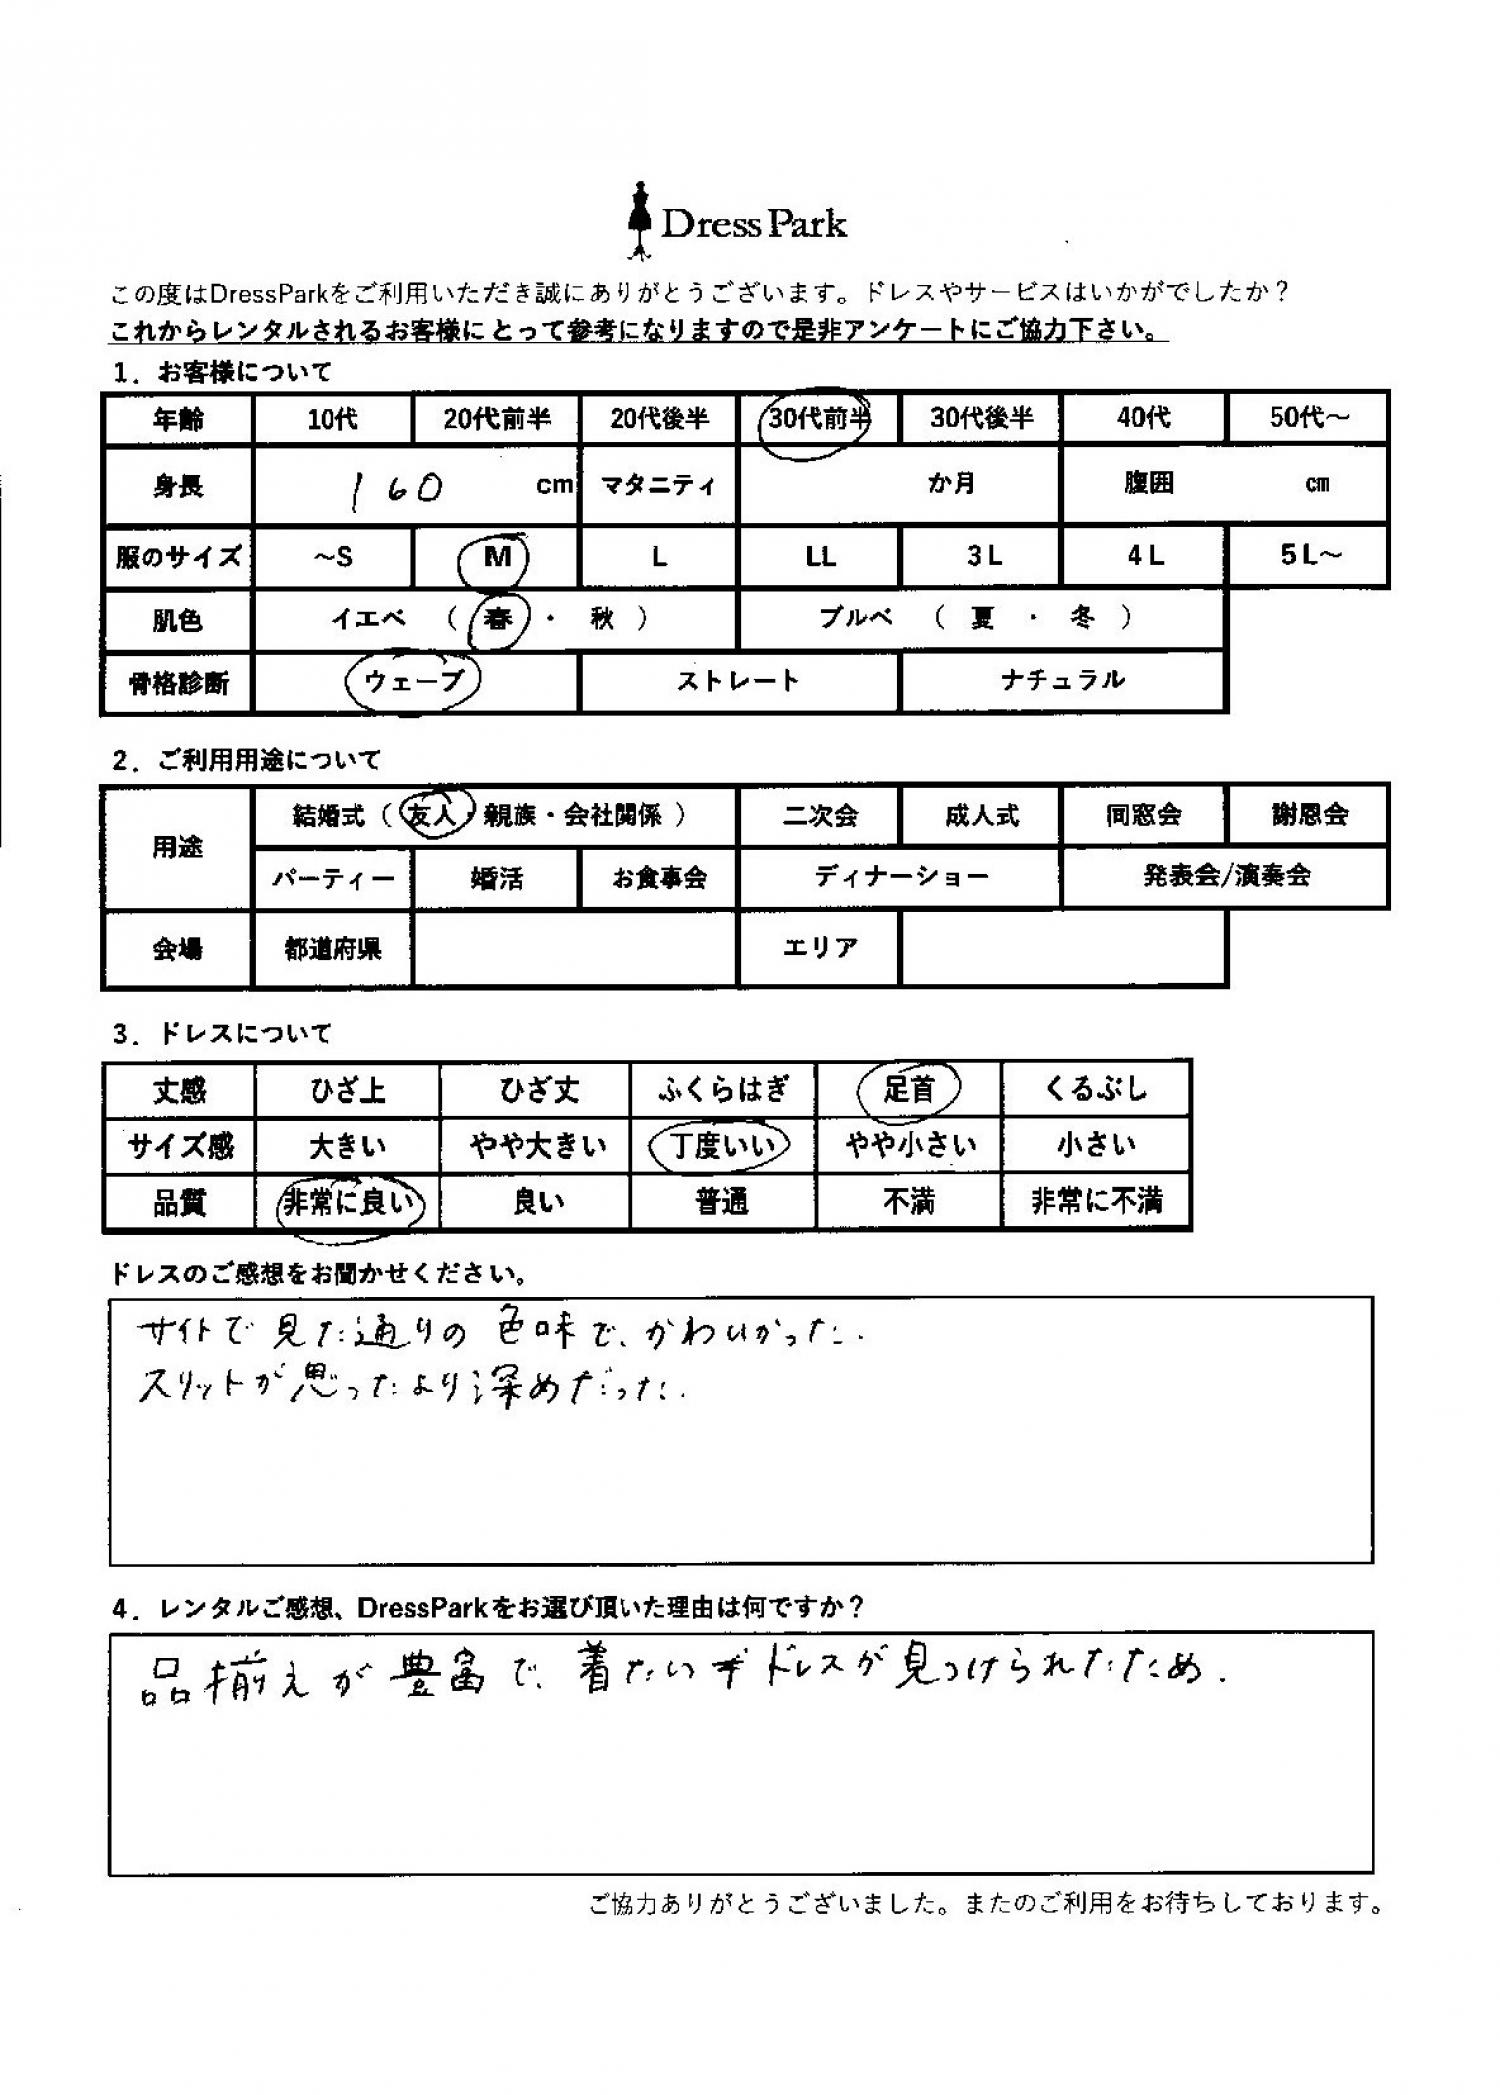 Dress Park
この度はDressParkをご利用いただき誠にありがとうございます。ドレスやサービスはいかがでしたか？
これからレンタルされるお客様にとって参考になりますので是非アンケートにご協力下さい。
1．お客様について
年齢 10代 20代前半 20代後半 30代前半 30代後半 40代 50代～
身長 160 cm マタニティ か月 腹囲 cm
服のサイズ ～S M L LL 3L 4L 5L～
肌色 イエベ （ 春 ・ 秋 ） ブルベ （ 夏 ・ 冬 ）
骨格診断 ウェーブ ストレート ナチュラル
2．ご利用用途について
用途 結婚式（ 友人・親族・会社関係 ） 二次会 成人式 同窓会 謝恩会
パーティー 婚活 お食事会 ディナーショー 発表会/演奏会
会場 都道府県 エリア
3．ドレスについて
丈感 ひざ上 ひざ丈 ふくらはぎ 足首 くるぶし
サイズ感 大きい やや大きい 丁度いい やや小さい 小さい
品質 非常に良い 良い 普通 不満 非常に不満
ドレスのご感想をお聞かせください。
サイトで見た通りの色味で、かわいかった．
スリットが思ったより深めだった．
4．レンタルご感想、DressParkをお選び頂いた理由は何ですか？
品揃えが豊富で、着たいドレスが見つけられたため．
ご協力ありがとうございました。またのご利用をお待ちしております。